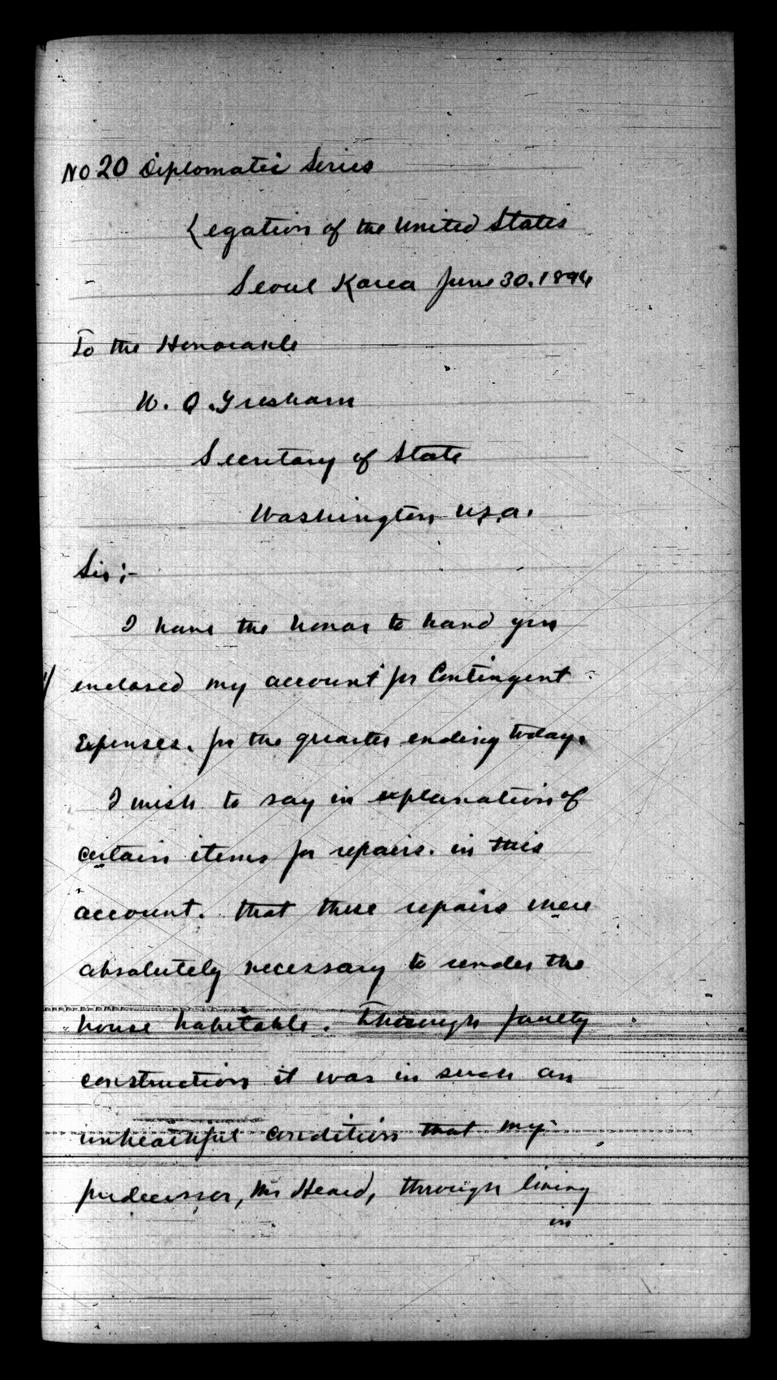 No 20 Diplomatic Series
Legation of the United States
Seoul Korea June 30. 1894
To the Honorable
W. Q. Gresham
Secretary of State
Washington, U.S.A.
Sir:-
I have the honor to hand you
enclosed my account for Contingent
Expenses. for the quarter ending today.
I wish to say in explanation of
certain items for repairs. in this
account. that these repairs were
absolutely necessary to render the
house habitable. Through faulty
construction it was in such an
unhealthful condition that my
predecessor, Mr Heard, through living
in